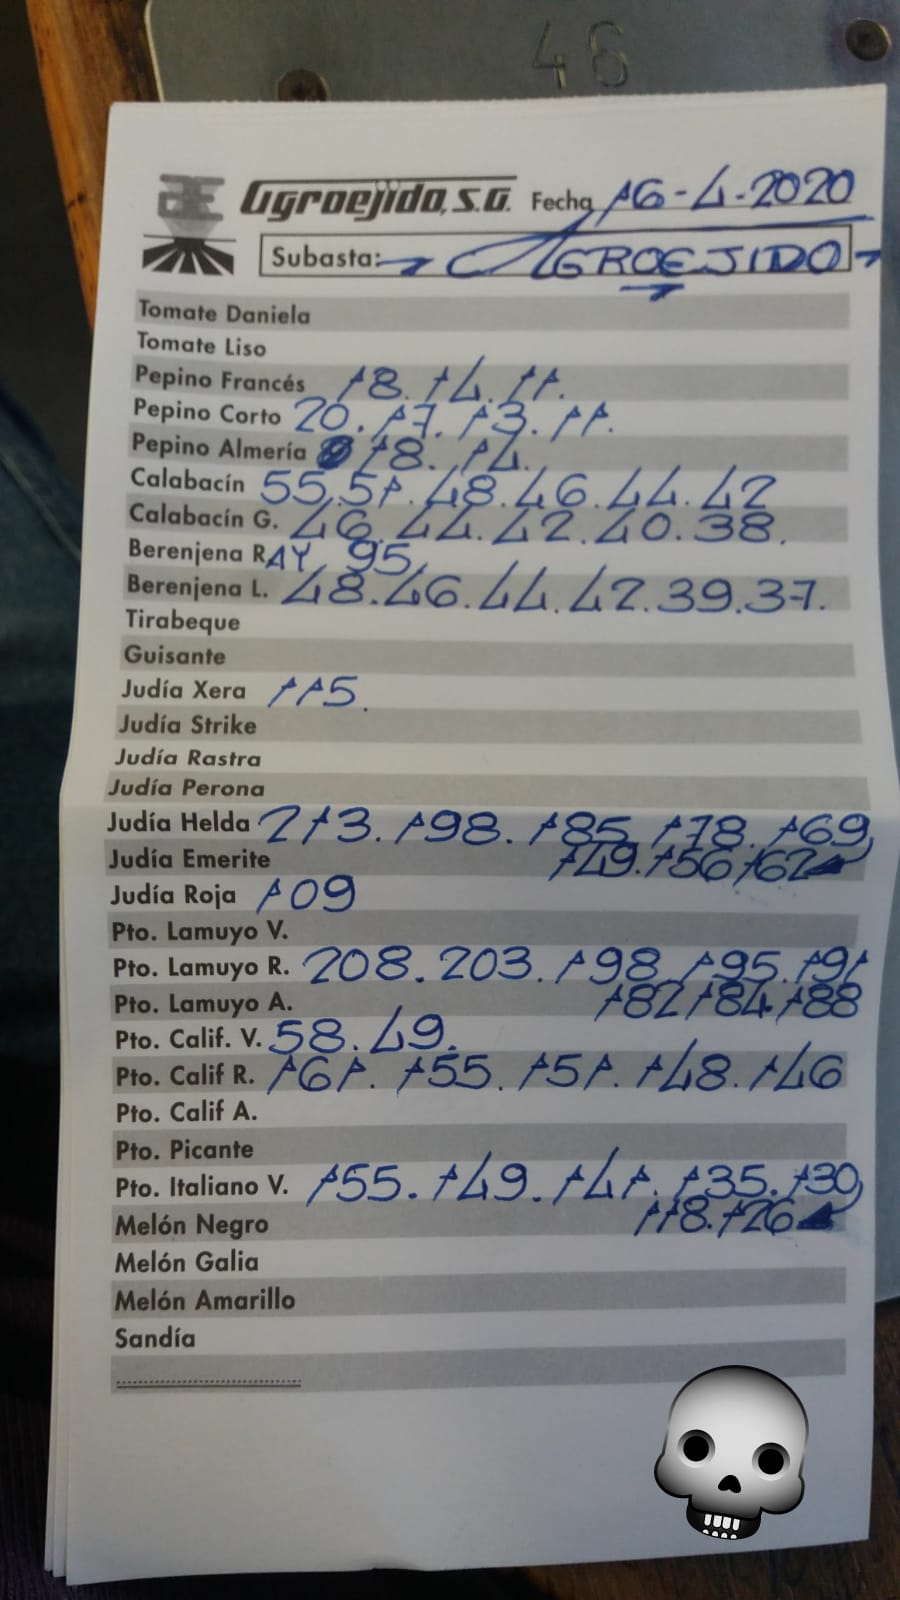 46
Agroejido, S.A. Fecha 16-4-2020
Subasta: AGROEJIDO
Tomate Daniela
Tomate Liso
Pepino Francés 18. 14. 11.
Pepino Corto 20. 17. 13. 11.
Pepino Almería 18. 14.
Calabacín 55. 51. 48. 46. 44. 42
Calabacín G. 46. 44. 42. 40. 38.
Berenjena RAY 95.
Berenjena L. 48. 46. 44. 42. 39. 37.
Tirabeque
Guisante
Judía Xera 115.
Judía Strike
Judía Rastra
Judía Perona
Judía Helda 213. 198. 185. 178. 169
Judía Emerite 149. 156 162
Judía Roja 109
Pto. Lamuyo V.
Pto. Lamuyo R. 208. 203. 198. 195. 191
Pto. Lamuyo A. 182 184. 188
Pto. Calif. V. 58. 49.
Pto. Calif R. 161. 155. 151. 148. 146
Pto. Calif A.
Pto. Picante
Pto. Italiano V. 155. 149. 141. 135. 130
Melón Negro 118. 126
Melón Galia
Melón Amarillo
Sandía